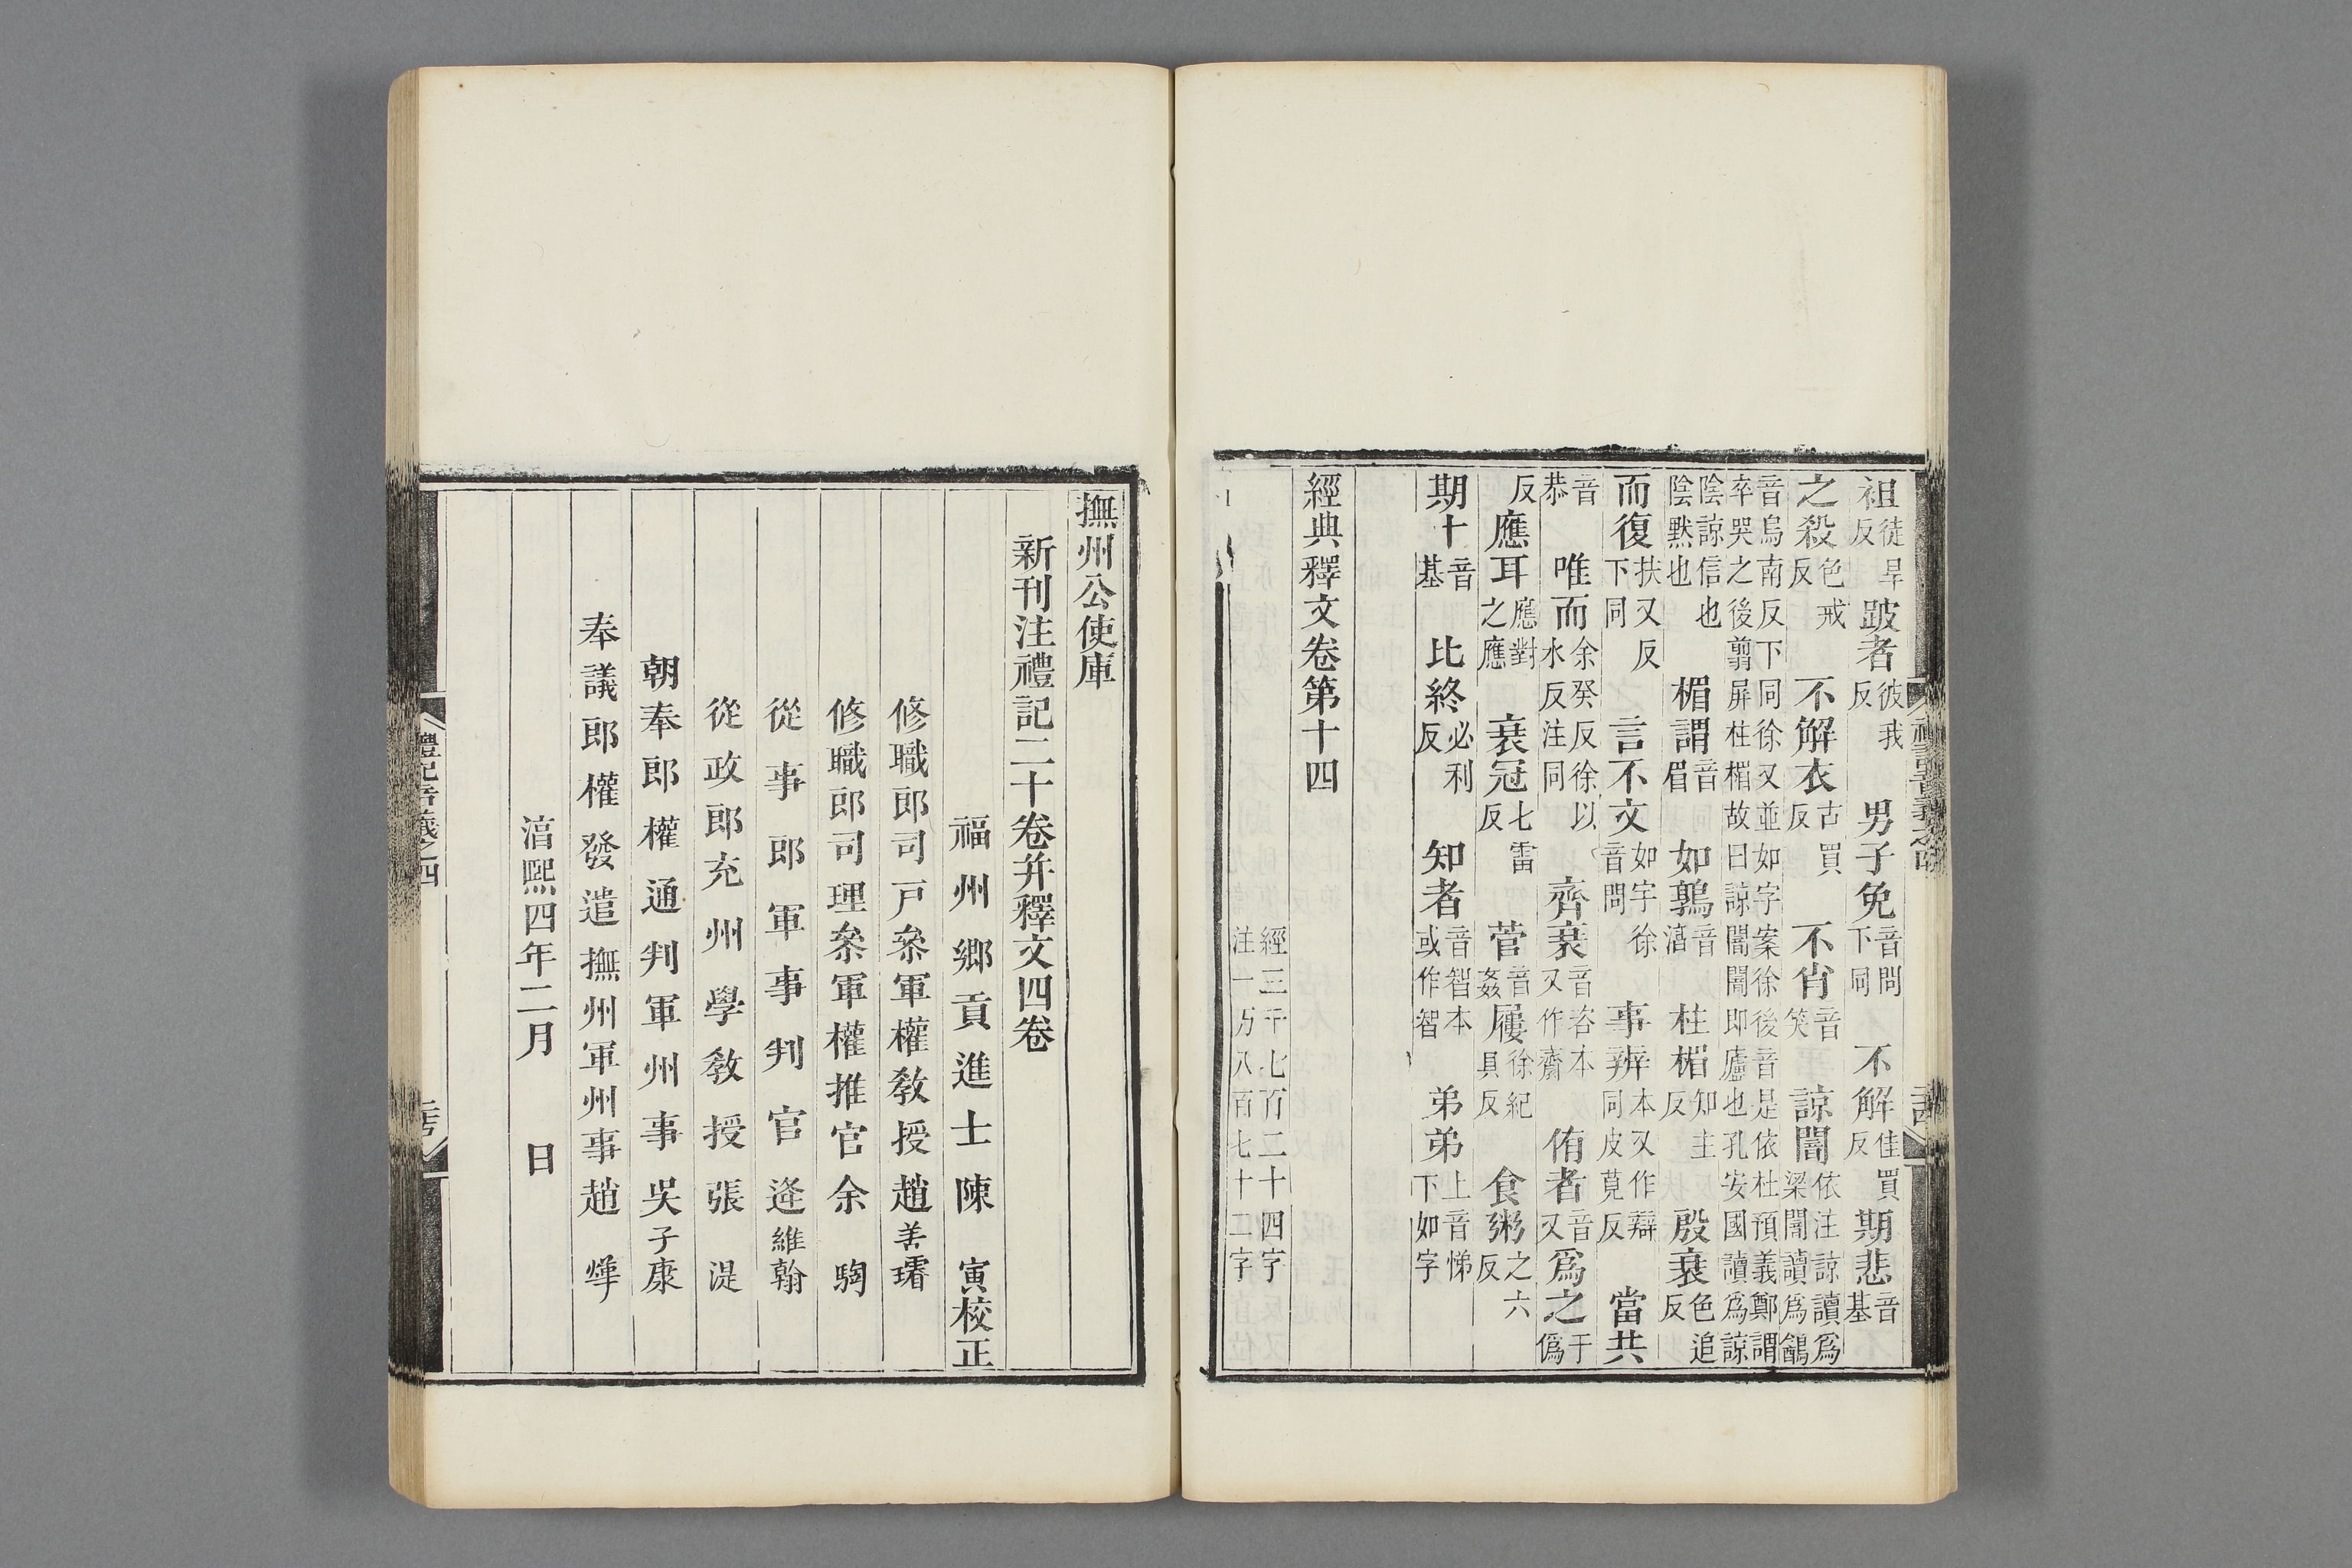 袒徒旱反跛者彼我反男子免音問下同不解佳買反期悲音基
之殺色戒反不解衣古買反不肖音笑諒闇依注諒讀爲梁闇讀爲鶕
音烏南反下同徐又並如字案徐後音是依杜預義鄭謂卒哭之後翦屏柱楣故曰諒闇闇即廬也孔安國讀爲諒
陰諒信也陰黙也楣謂音眉如鶉音湻柱楣知主反殷衰色追反
而復扶又反下同言不文如字徐音問事辨本又作辯同皮莧反當共
音恭唯而余癸反徐以水反注同齊衰音咨本又作齋侑者音又爲之于僞
反應耳應對之應衰冠七雷反菅音姦屨徐紀具反食粥之六反
期十音基比終必利反知者音智本或作智弟弟上音悌下如字
經典釋文卷第十四
經三千七百二十四字
注一万八百七十二字
撫州公使庫
新刊注禮記二十卷并釋文四卷
福州鄉貢進士陳寅校正
修職郎司戸叅軍權教授趙善璿
修職郎司理叅軍權推官余駒
從事郎軍事判官逄維翰
從政郎充州學教授張湜
朝奉郎權通判軍州事吳子康
奉議郎權發遣撫州軍州事趙爗
湻熙四年二月日
禮記音義之四